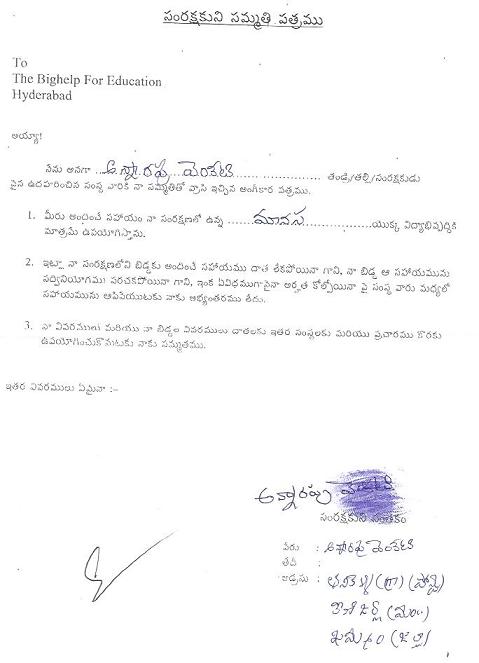 సంరక్షకుని సమ్మతి పత్రము
To
The Bighelp For Education
Hyderabad
అయ్యా!
నేను అనగా ........ వెంకటి ........ తండ్రి/తల్లి/సంరక్షకుడు
పైన ఉదహరించిన సంస్థ వారికి నా సమ్మతితో వ్రాసి ఇచ్చిన అంగీకార పత్రము.
1. మీరు అందించే సహాయం నా సంరక్షణలో ఉన్న ........ మానస ........ యొక్క విద్యాభివృద్ధికి
మాత్రమే ఉపయోగిస్తాను.
2. ఇట్లా నా సంరక్షణలోని బిడ్డకు అందించే సహాయము దాత లేకపోయినా గాని, నా బిడ్డ ఆ సహాయమును
సద్వినియోగము పరచకపోయినా గాని, ఇంక ఏవిధముగానైనా అర్హత కోల్పోయినా పై సంస్థ వారు మధ్యలో
సహాయమును ఆపివేయుటకు నాకు అభ్యంతరము లేదు.
3. నా వివరములు మరియు నా బిడ్డల వివరములు దాతలకు ఇతర సంస్థలకు మరియు ప్రచారము కొరకు
ఉపయోగించుకొనుటకు నాకు సమ్మతము.
ఇతర వివరములు ఏమైనా :-
సంరక్షకుని సంతకం
పేరు : వెంకటి
తేదీ :
అడ్రసు : (గ్రా) (పోస్ట్)
(మం)
ఖమ్మం (జిల్లా)